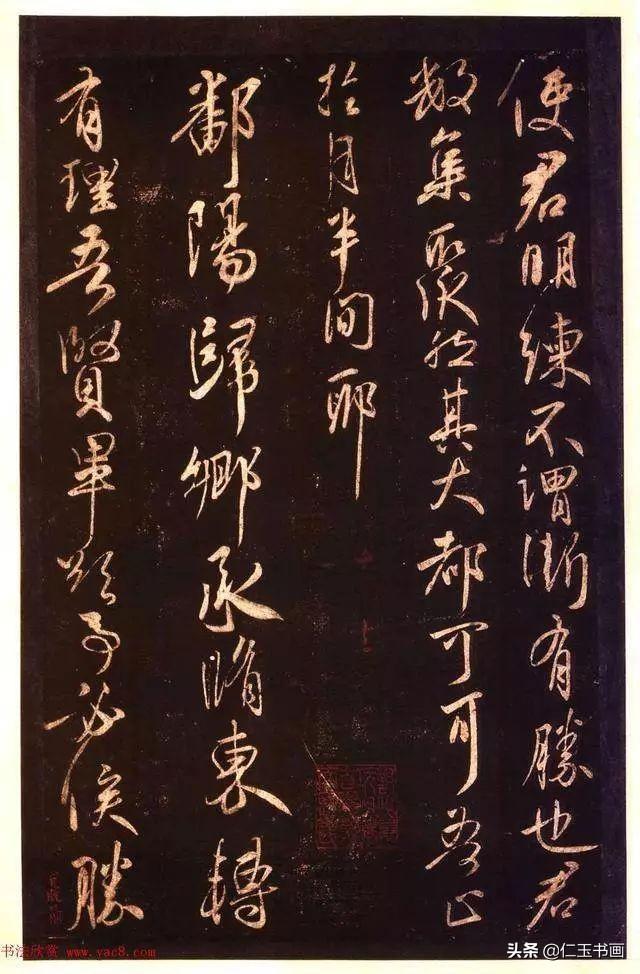 使君明練不謂漸有勝也君
數集聚然其大都可可吾止
於月半間耶
鄱陽歸鄉承脩東轉
有理吾賢畢欲事必俟勝
书法欣赏 www.yac8.com
头条 @仁玉书画